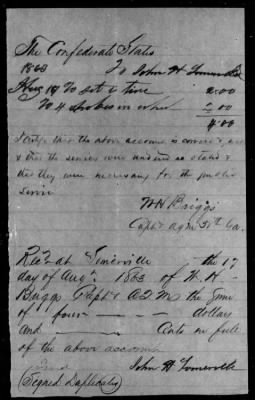 The Confederate States
1863 To John H Somerville
Aug 17 To set 1 tire 2.00
To 4 spokes in wheel 2.00
4.00
I certify that the above account is correct & just
& that the services were rendered as stated &
that they were necessary for the public
service
W H Briggs
Capt & aqm Ga.
Recd at Somerville the 17
day of Augt 1863 of W. H.
Briggs Capt & A.Q.M. the sum
of four dollars
and cents in full
of the above account
(Signed Duplicates)
John H Somerville